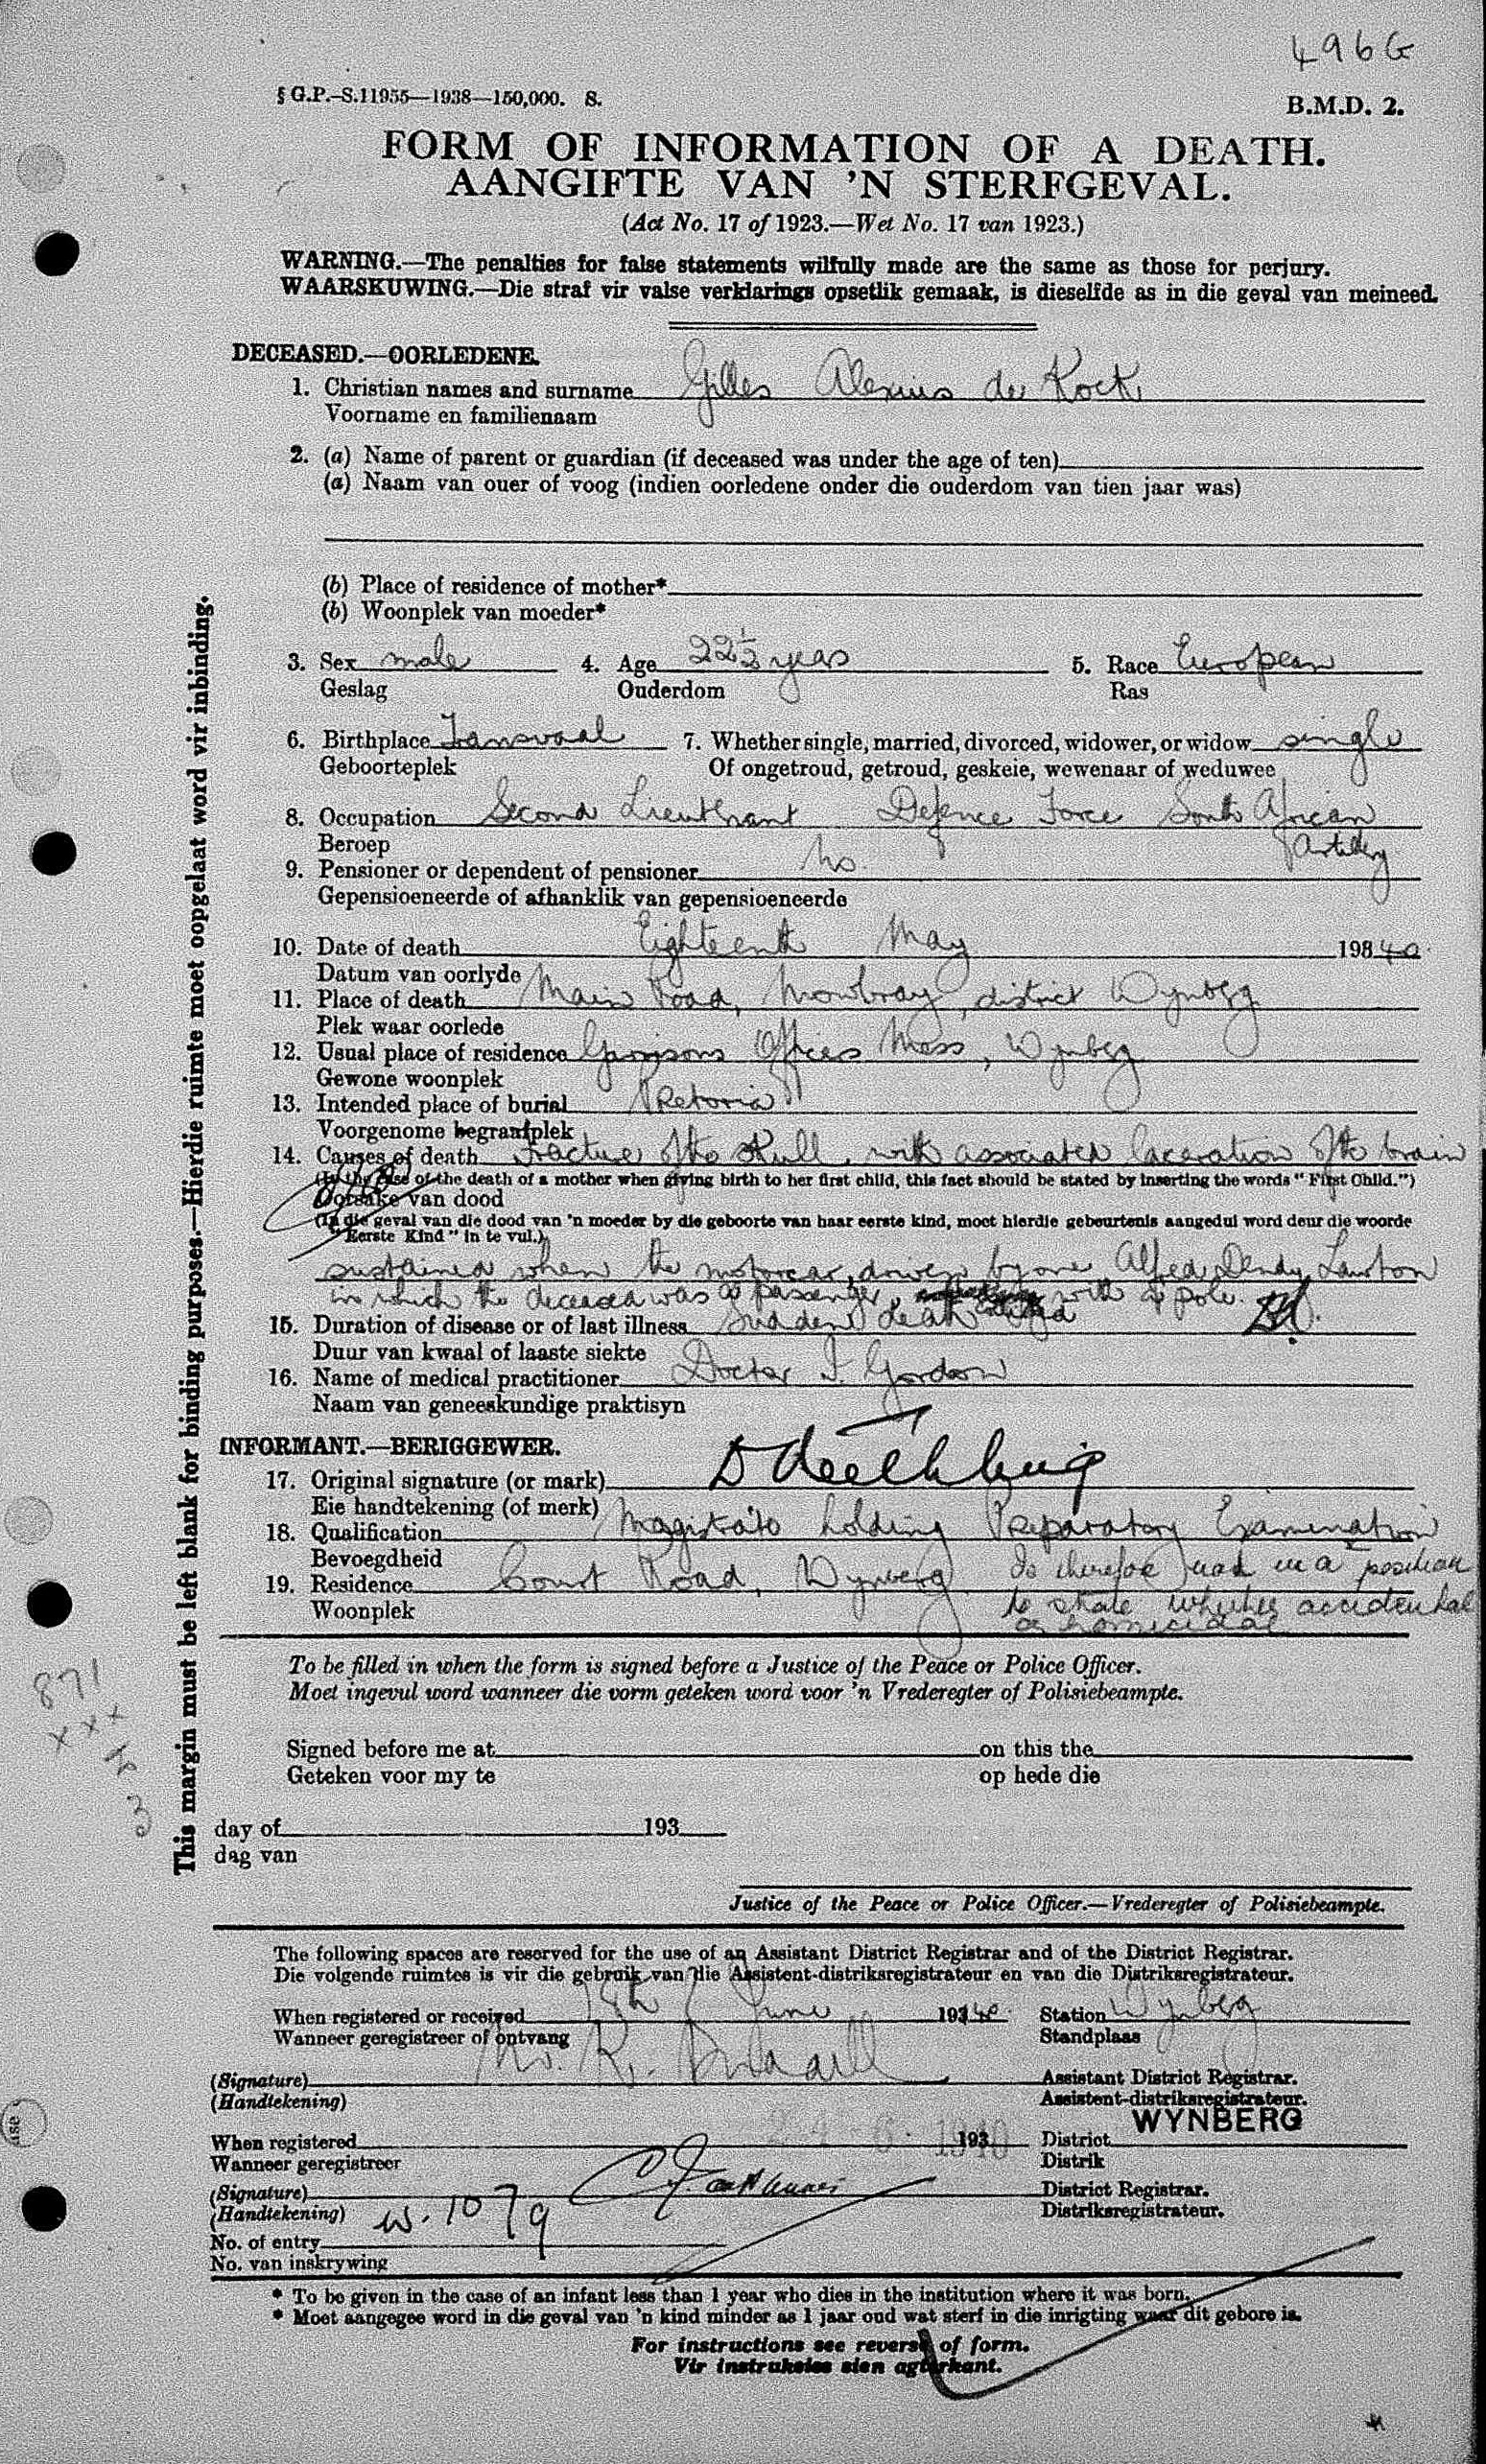 496G
§ G.P.-S.11955—1938—150,000. S.
B.M.D. 2.
FORM OF INFORMATION OF A DEATH.
AANGIFTE VAN 'N STERFGEVAL.
(Act No. 17 of 1923.—Wet No. 17 van 1923.)
WARNING.—The penalties for false statements wilfully made are the same as those for perjury.
WAARSKUWING.—Die straf vir valse verklarings opsetlik gemaak, is dieselfde as in die geval van meineed.
DECEASED.—OORLEDENE.
1. Christian names and surname Gilles Alexius de Kock
Voorname en familienaam
2. (a) Name of parent or guardian (if deceased was under the age of ten)
(a) Naam van ouer of voog (indien oorledene onder die ouderdom van tien jaar was)
(b) Place of residence of mother*
(b) Woonplek van moeder*
3. Sex male 4. Age 22½ years 5. Race European
Geslag Ouderdom Ras
6. Birthplace Transvaal 7. Whether single, married, divorced, widower, or widow single
Geboorteplek Of ongetroud, getroud, geskeie, wewenaar of weduwee
8. Occupation Second Lieutenant Defence Force South African
Beroep Artillery
9. Pensioner or dependent of pensioner No
Gepensioeneerde of afhanklik van gepensioeneerde
10. Date of death Eighteenth May 19340
Datum van oorlyde
11. Place of death Main Road, Mowbray, district Wynberg
Plek waar oorlede
12. Usual place of residence Garrisons Officers Mess, Wynberg
Gewone woonplek
13. Intended place of burial Pretoria
Voorgenome begraafplek
14. Causes of death Fracture of the skull, with associated laceration of the brain
(In the case of the death of a mother when giving birth to her first child, this fact should be stated by inserting the words "First Child.")
Oorsake van dood
(In die geval van die dood van 'n moeder by die geboorte van haar eerste kind, moet hierdie gebeurtenis aangedui word deur die woorde
"Eerste Kind" in te vul.)
sustained when the motorcar, driven by one Alfred Dendy Lawton
in which the deceased was a passenger, collided with a pole.
15. Duration of disease or of last illness Sudden death
Duur van kwaal of laaste siekte
16. Name of medical practitioner Doctor I. Gordon
Naam van geneeskundige praktisyn
INFORMANT.—BERIGGEWER.
17. Original signature (or mark)
Eie handtekening (of merk)
18. Qualification Magistrate holding Preparatory Examination
Bevoegdheid
19. Residence Court Road, Wynberg Is therefore not in a position
Woonplek to state whether accidental
or homicidal
To be filled in when the form is signed before a Justice of the Peace or Police Officer.
Moet ingevul word wanneer die vorm geteken word voor 'n Vrederegter of Polisiebeampte.
Signed before me at on this the
Geteken voor my te op hede die
day of 193
dag van
Justice of the Peace or Police Officer.—Vrederegter of Polisiebeampte.
The following spaces are reserved for the use of an Assistant District Registrar and of the District Registrar.
Die volgende ruimtes is vir die gebruik van die Assistent-distriksregistrateur en van die Distriksregistrateur.
When registered or received 18th June 19340. Station Wynberg
Wanneer geregistreer of ontvang Standplaas
(Signature) Assistant District Registrar.
(Handtekening) Assistent-distriksregistrateur.
WYNBERG
When registered 193 District
Wanneer geregistreer Distrik
(Signature) District Registrar.
(Handtekening) Distriksregistrateur.
W. 10/79
No. of entry
No. van inskrywing
* To be given in the case of an infant less than 1 year who dies in the institution where it was born.
* Moet aangegee word in die geval van 'n kind minder as 1 jaar oud wat sterf in die inrigting waar dit gebore is.
For instructions see reverse of form.
Vir instruksies sien agterkant.
This margin must be left blank for binding purposes.—Hierdie ruimte moet oopgelaat word vir inbinding.
871
xxx